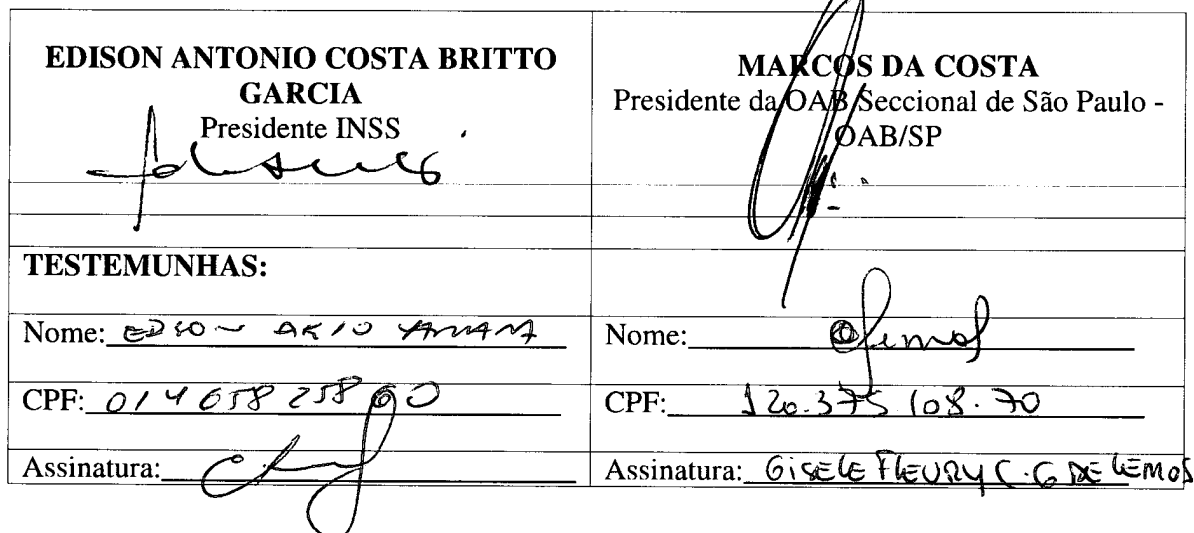 EDISON ANTONIO COSTA BRITTO
GARCIA
Presidente INSS
MARCOS DA COSTA
Presidente da OAB/Seccional de São Paulo -
OAB/SP
TESTEMUNHAS:
Nome: EDSON AKIO
CPF:
Assinatura:
Nome:
CPF: 120.375.108.70
Assinatura: GISELE FLEURY C. G DE LEMOS